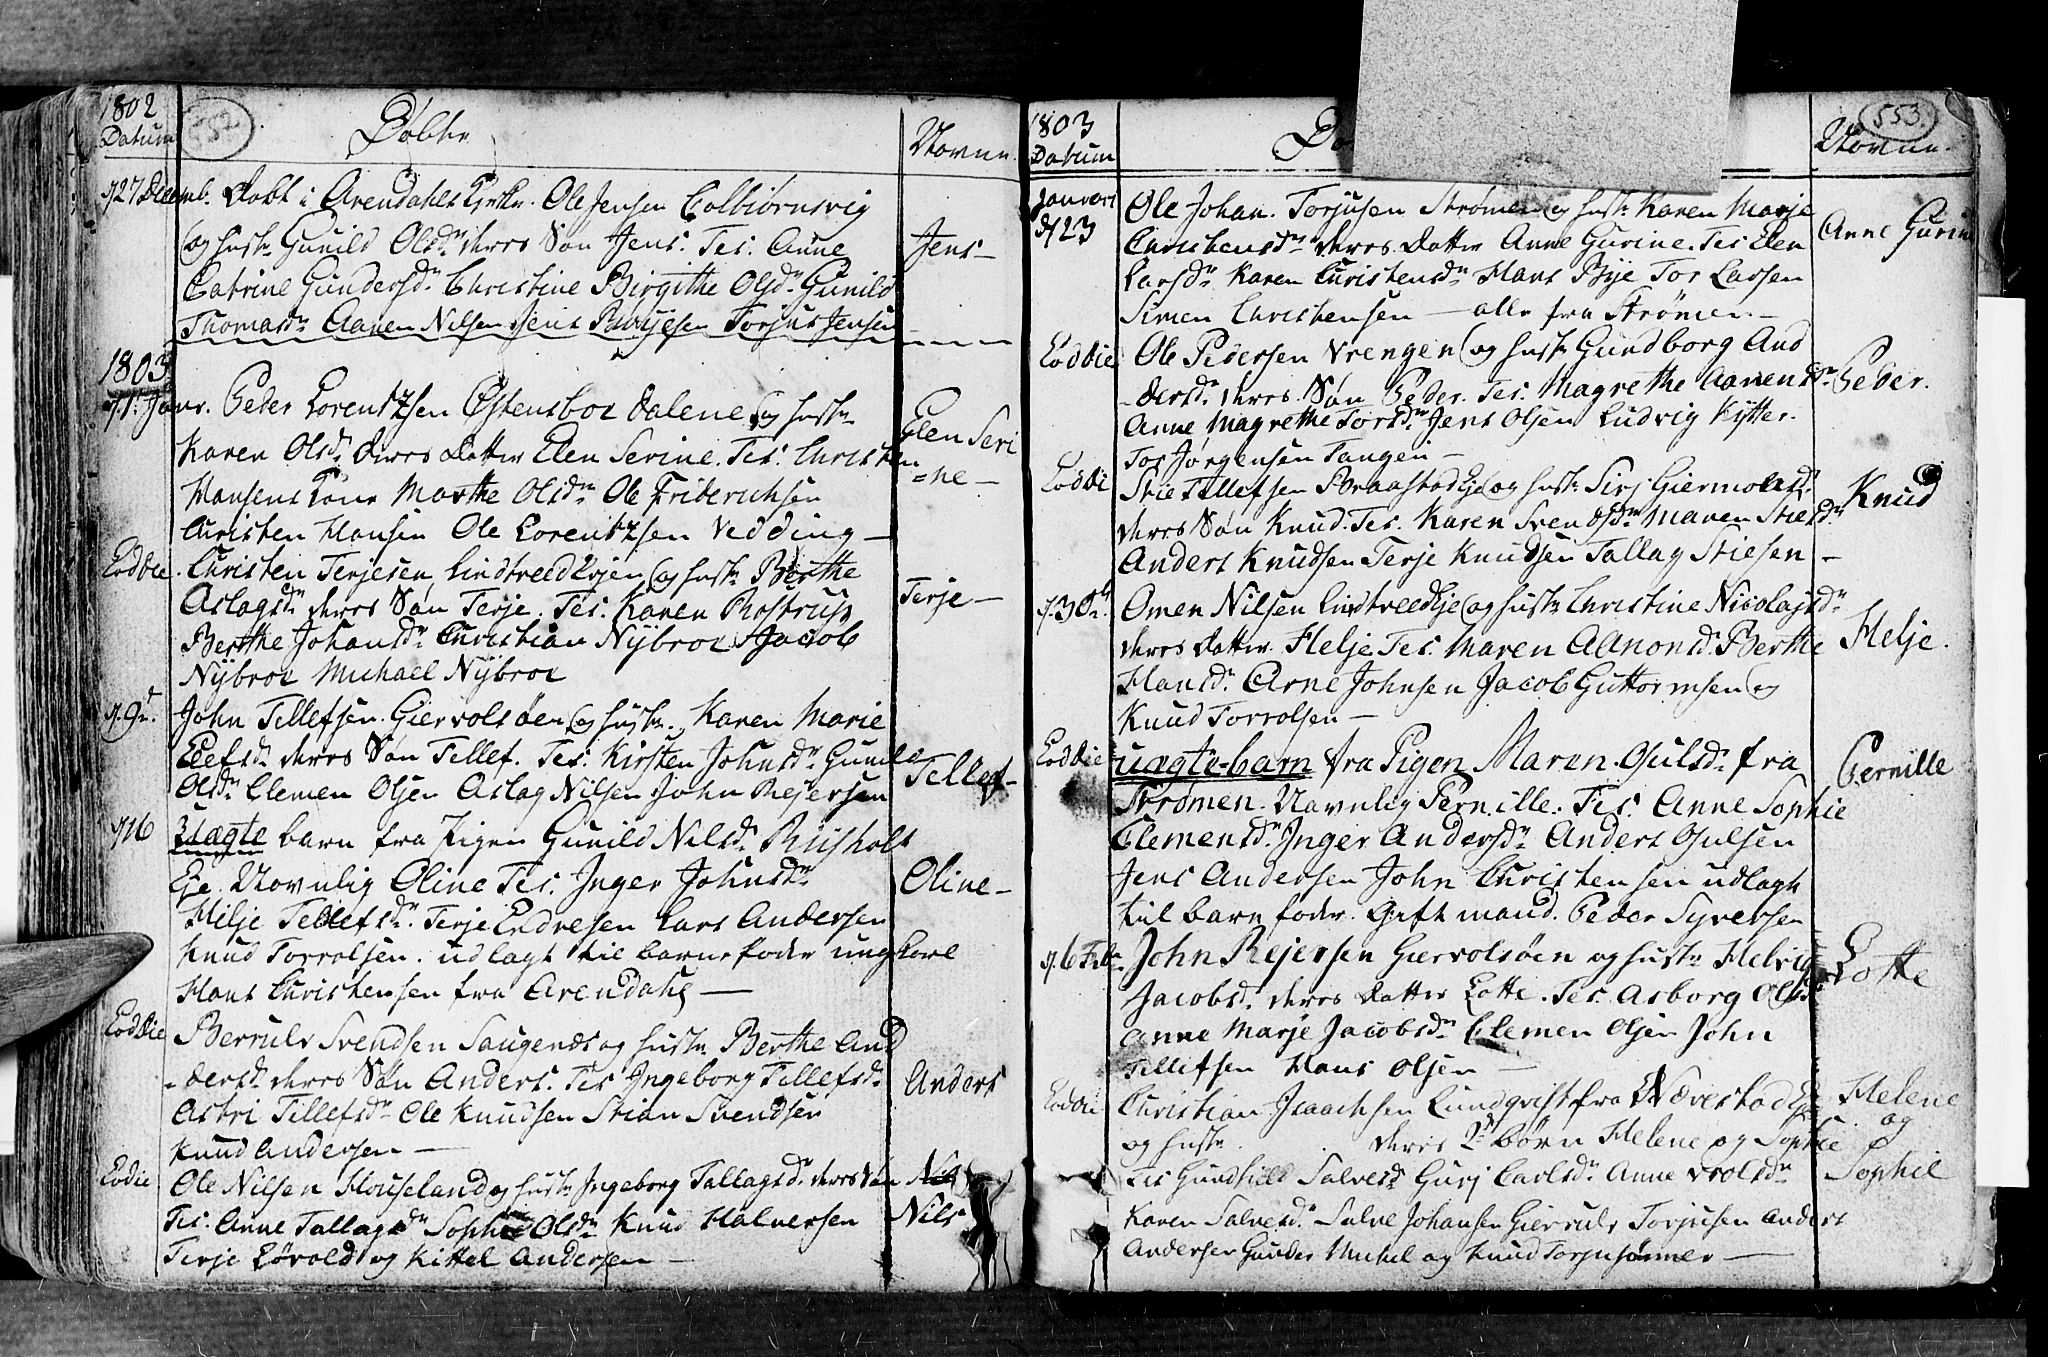 1802
Datum
552
Døbte
Navne
d 27 Decemb. Døbt i Arendahls Kirke. Ole Jensen Colbiørnsvig
og hustr Gunild Olsdr deres Søn Jens. Tes. Anne
Catrine Gundersdr Christine Birgithe Olsdr Gunild
Thomasdr Aanen Nilsen Jens Børjesen Torjus Jensen
Jens
1803
d 1. Janr. Peder Lorentzsen Østensboe Dalene og hustr
Karen Olsdr deres Datter Elen Serine. Tes. Christen
Hansens Kone Marthe Olsdr Ole Friderichsen
Christen Hansen Ole Lorentzsen Vedding
Elen Seri
=ne
Eod die. Christen Terjesen Lindtveed Eyen og hustr Berthe
Aslagsdr deres Søn Terje. Tes. Karen Rostrup
Berthe Johansdr Christian Nÿbroe Jacob
Nÿbroe Michael Nÿbroe
Terje
d. 9de. John Tellefsen Giervolsøen og hustr. Karen Marie
Elefsdr deres Søn Tellef. Tes. Kirsten Johnsdr Gunild
Olsdr Clemen Olsen Aslag Nilsen John Rejersen
Tellef
d 16 Uægte barn fra Pigen Gunild Nilsdr Riisholt
Eje. Navnlig Oline Tes. Inger Johnsdr
Hilje Tellefsdr. Terje Endresen Lars Andersen
Knud Torrolsen. udlagt til barnefader ungkarl
Hans Christensen fra Arendahl
Oline
Eod die Berruls Svendsen Saugenes og hustr Berthe And
=dersdr deres Søn Anders. Tes Ingeborg Tellefsdr
Astri Tellefsdr Ole Knudsen Stian Svendsen
Knud Andersen
Anders
Eodie Ole Nilsen Houseland og hustr Ingeborg Tallagsdr deres Søn
Tes. Anne Tallagsdr Sophie Olsdr Knud Halversen
Terje Løvold og Kittel Andersen
Nils
1803
Datum
553.
Navne.
Januari
d 23 Ole Johan Torjusen Strømen og hustr Karen Marje
Christensdr deres Datter Anne Gurine. Tes Elen
Larsdr Karen Christensdr Hans Bÿe Tor Lassen
Simen Christensen alle fra Strømen
Anne Gurine
Eod die Ole Pedersen Vrengen og hustr Gundborg And
=dersdr deres Søn Peder. Tes. Magrethe Aanensdr
Anne Magrethe Torsdr Jens Olsen Ludvig Kÿtter.
Tor Jørgensen Tangen
Peder.
Eoddi Stie Tellefsen Braastad Eje og hustr Sirj Giermolsdr
deres Søn Knud. Tes. Karen Svendsdr Maren Stiesdr
Anders Knudsen Terje Knudsen Tallag Stiesen
Knud
d. 30te Omen Nilsen Lindtveed Eje og hustr Christine Nicolajsdr
deres Datter Helje Tes. Maren Aamonsdr Berthe
Hansdr. Arne Johnsen Jacob Guttormsen og
Knud Torrolsen
Helje.
Eod die uægte-barn fra Pigen Maren Gulsdr fra
Strømen. Navnlig Pernille. Tes. Anne Sophie
Clemensdr. Inger Andersdr Anders Gulsen
Jens Andersen John Christensen udlagt
til barnefader. Gift mand. Peder Syversen
Pernille
d. 6 Febr. John Rejersen Giervolsøen og hustr Helvig
Jacobsdr deres Datter Lotte. Tes. Asborg Olsdr
Anne Marje Jacobsdr Clemen Olsen John
Tellefsen Hans Olsen
Lotte
Eoddie Christian Isaachsen Lundqvist fra Næverstad Eje
og hustr. deres 2de børn Helene og Sophie
Tes Gundhild Salvesdr Gurj Carlsdr Anne Vrolsdr
Karen Salvesdr. Salve Johansen Gierruls Torjusen Anders
Andersen Gunder Michel og Knud Torjusønner
Helene
og
Sophie